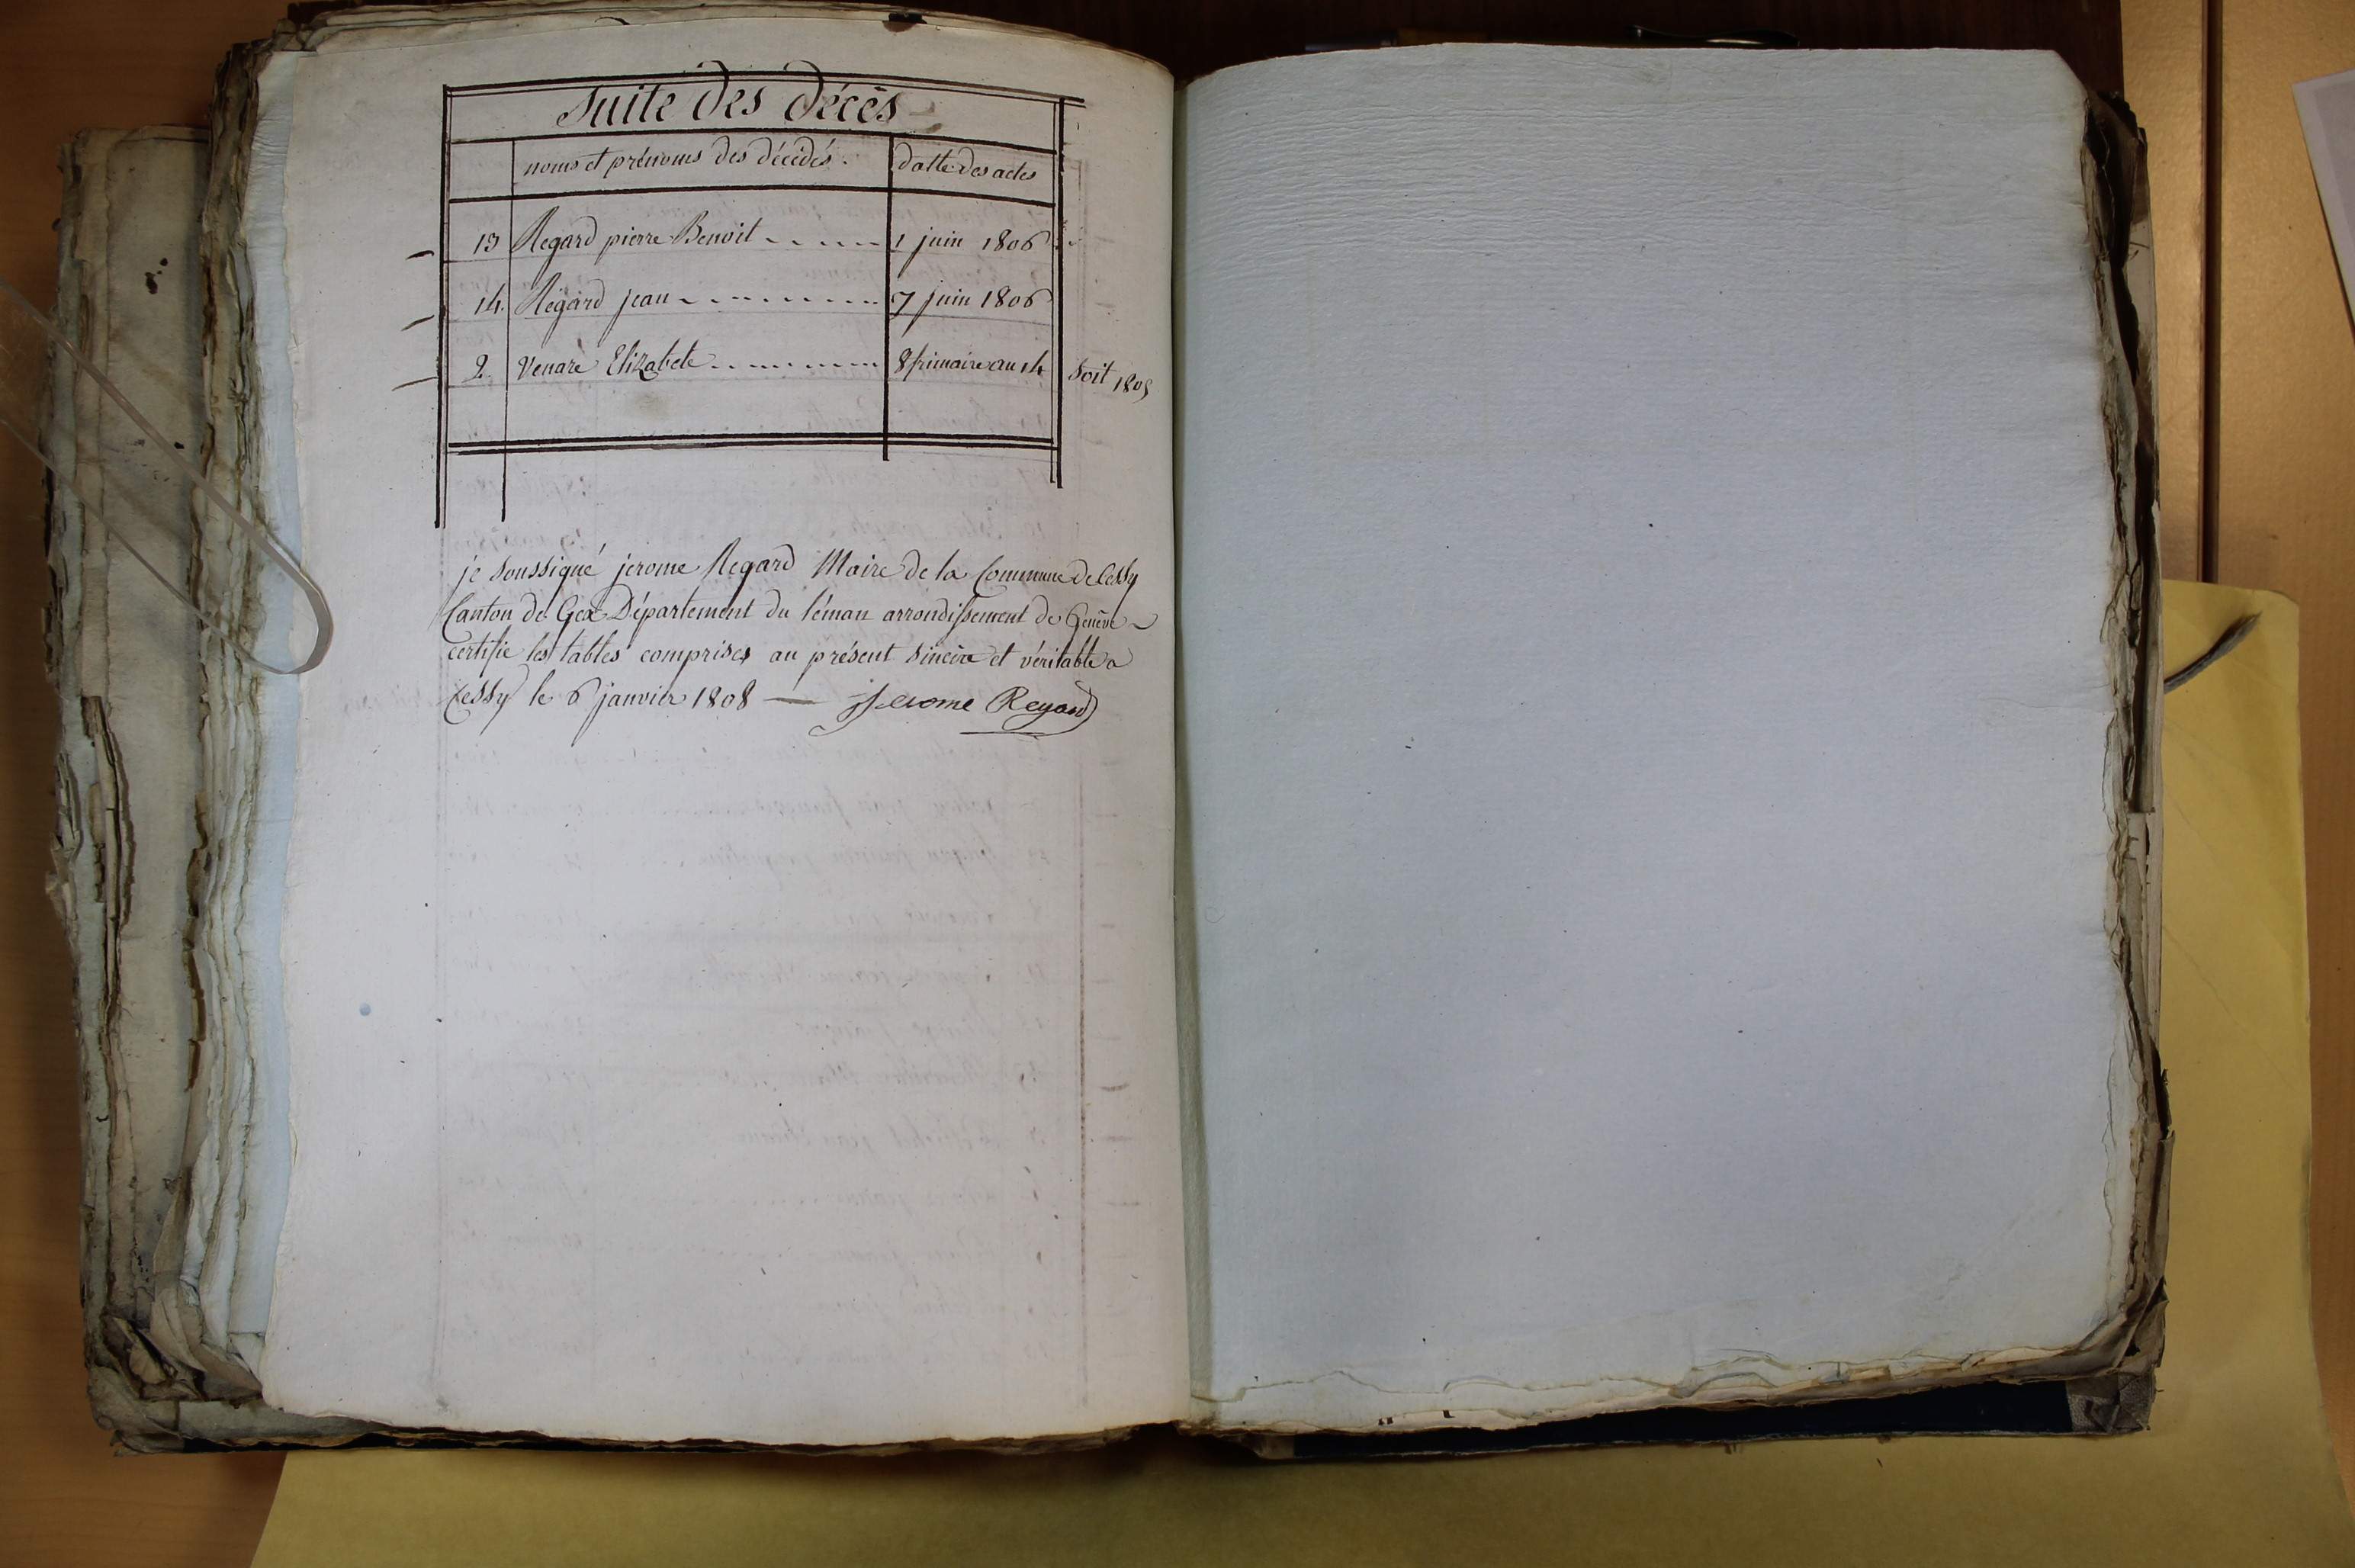 Suite des décès
noms et prénoms des décédés. datte des actes
13 Regard pierre Benoit 1 juin 1806
14. Regard jean 7 juin 1806
2 Venare Elizabete 8 frimaire an 14 Soit 1805
je soussigné jerome Regard Maire de la Commune de Cessy
Canton de Gex Département du léman arrondissement de Genève
certifie les tables comprises au présent sincère et véritable a
Cessy le 6 janvier 1808 — Jerome Regard